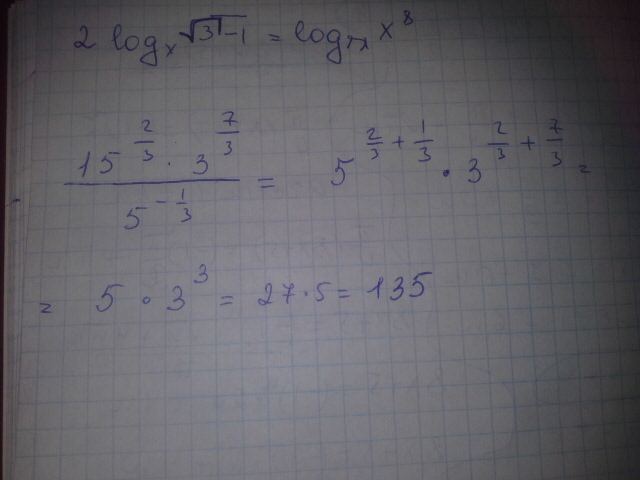 2 log_x √3 - 1 = log x^8
15^{2/3} · 3^{7/3} / 5^{-1/3} = 5^{2/3 + 1/3} · 3^{2/3 + 7/3} =
= 5 · 3^3 = 27 · 5 = 135